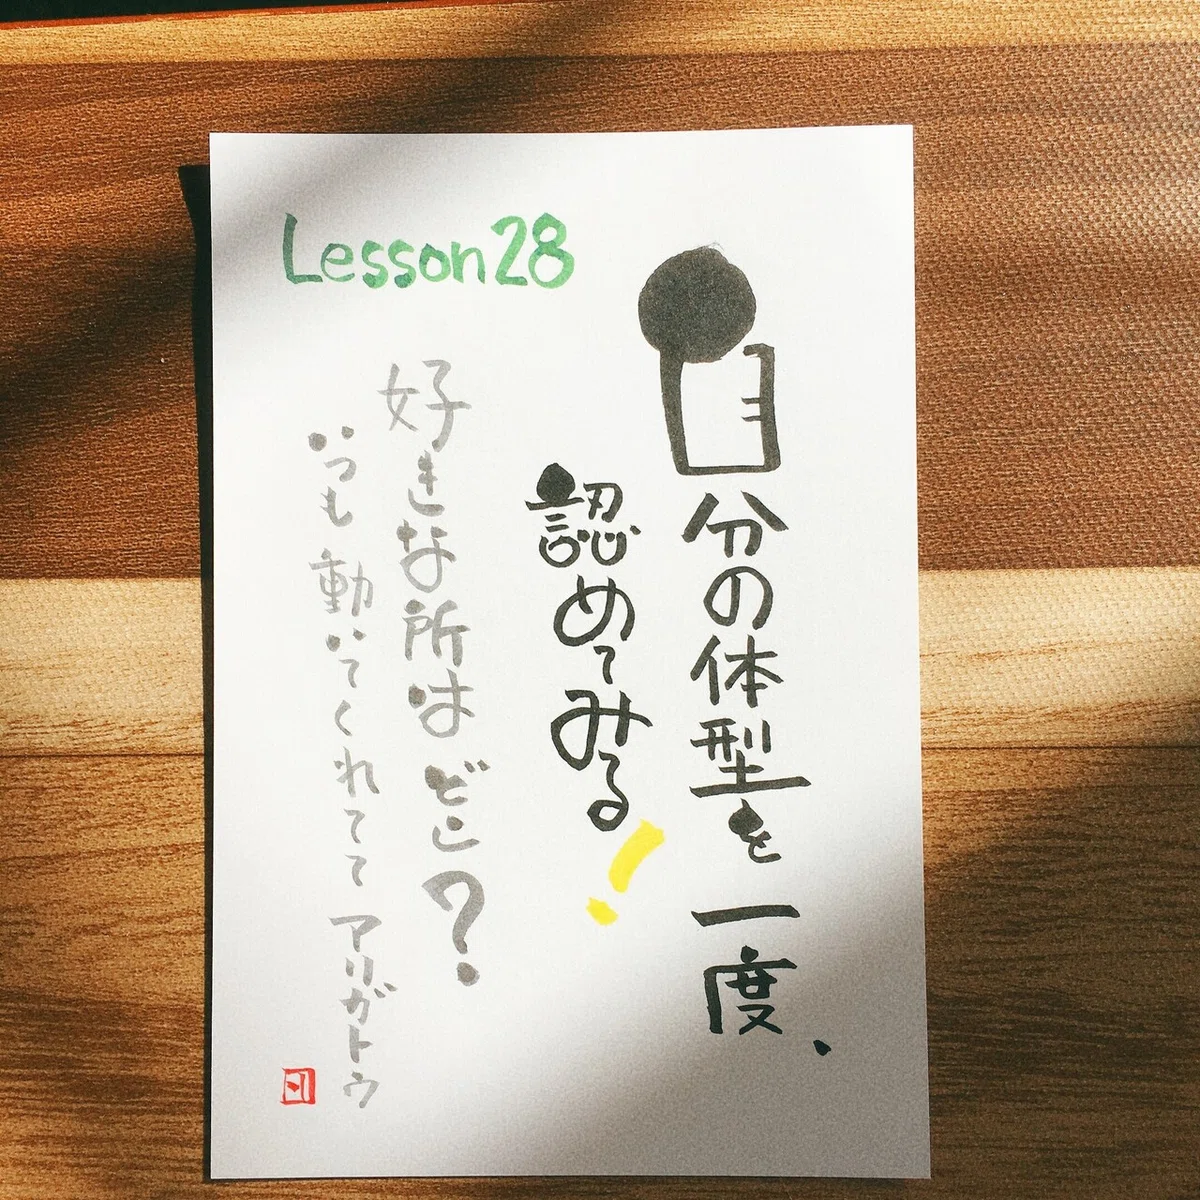 Lesson28
自分の体型を一度、
認めてみる!
好きな所はどこ?
いつも動いてくれててアリガトウ